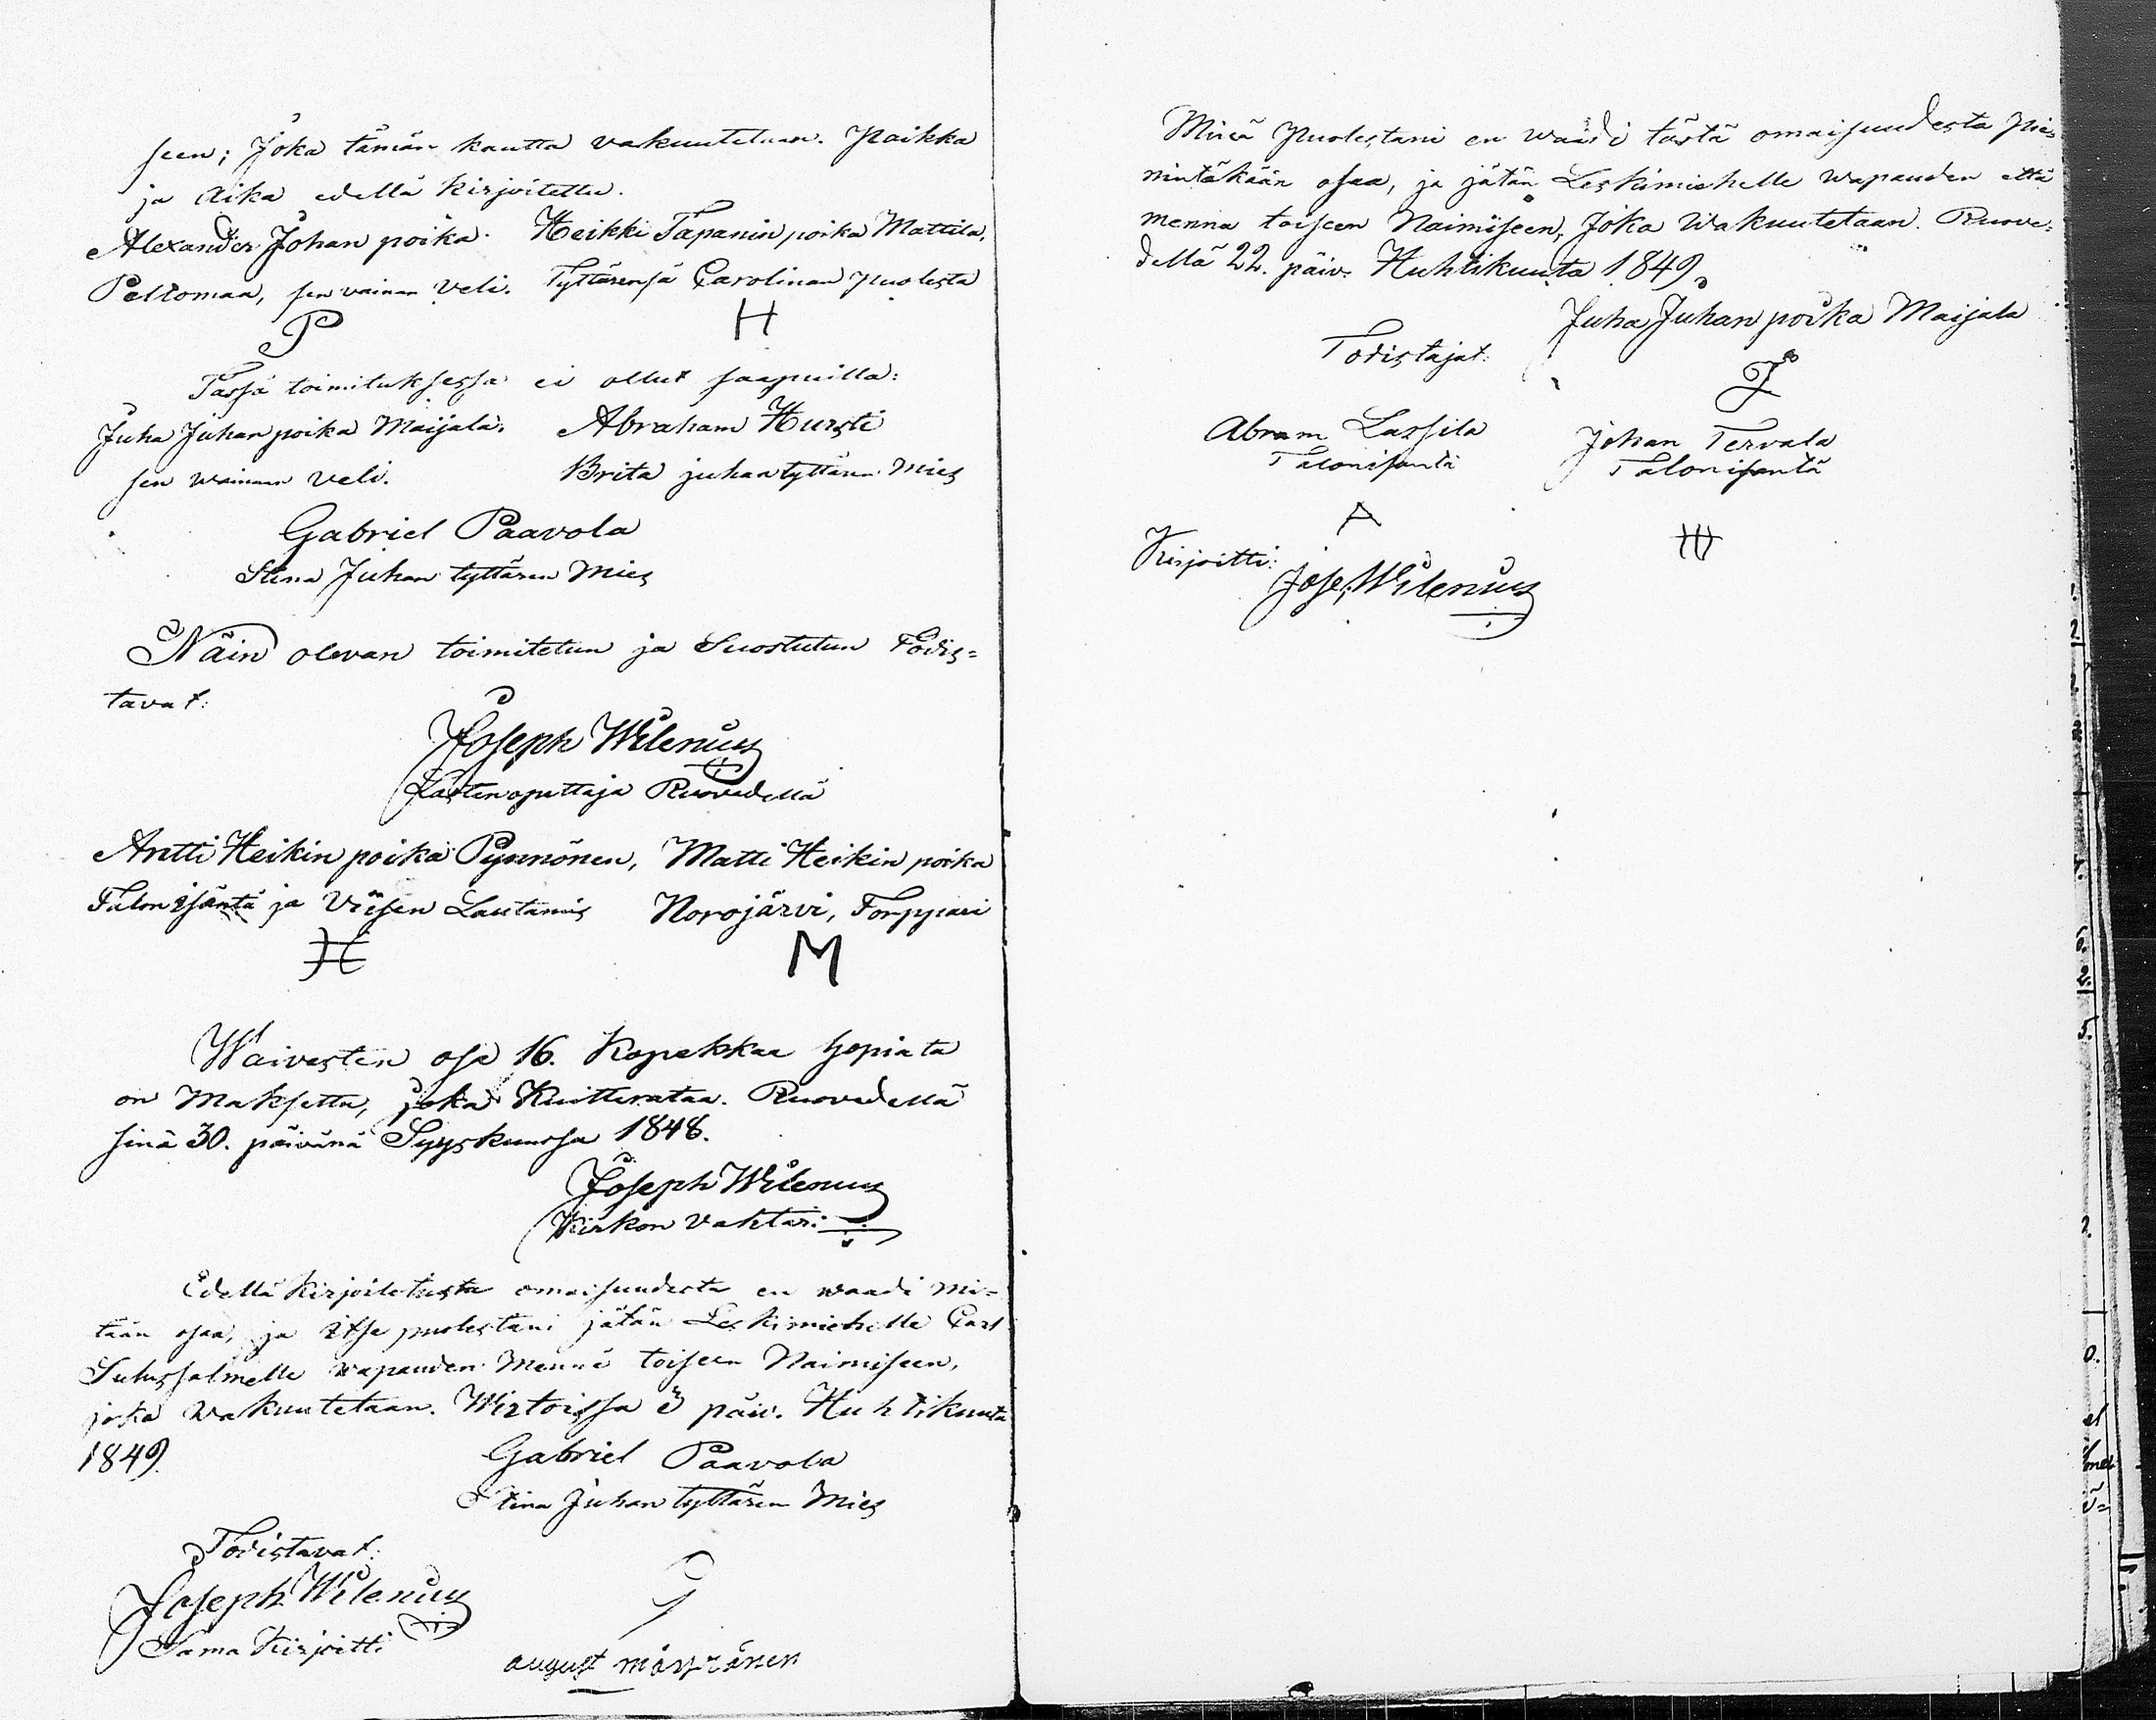 seen; Joka tämän kautta vakuutetaan. Paikka
ja Aika edellä kirjoitettu.
Alexander Johan poika. Heikki Tapanin poika Mattila,
Peltomaa, sen vainan Veli. Tyttärensä Carolinan puolesta
P H
Tässä toimituksessa ei ollut saapuilla:
Juha Juhan poika Maijala. Abraham Hursti
sen wainaan veli. Brita juhan tyttären Mies
Gabriel Paavola
Stina Juhan tyttären Mies
Näin olevan toimitetun ja Suostutun Todis=
tavat:
Joseph Wilenius
Lastenopettaja Ruovedellä
Antti Heikin poika Pynnönen, Matti Heikin poika
Talon Isäntä ja Viisen Lautamies Norojärvi, Torppari
H M
Waivasten osa 16. Kopekkaa hopiata
on Maksettu, joka Kuitterataan. Ruovedellä
sinä 30. päivänä Syyskuussa 1848.
Joseph Wilenius
Kirkon vahtari
Edellä kirjoitetusta omaisuudesta en waadi mi=
tään osaa, ja itse puolestani jätän Leskimiehelle Carl
wapauden Mennä toiseen Naimiseen,
joka wakuutetaan. Wirtoissa 3 päiv. Huhtikuuta
1849.
Gabriel Paavola
Stina Juhan tyttären Mies
Todistavat:
Joseph Wilenius
Sama Kirjoitti
G
august
Minä Puolestani en waadi tästä omaisuudesta Pie=
nintäkään osaa, ja jätän Leskimiehelle wapauden että
menna toiseen Naimiseen, Joka Wakuutetaan. Ruove=
dellä 22. päiv. Huhtikuuta 1849.
Juha Juhan poika Maijala
Todistajat:
J
Abram Lassila Johan Tervala
Talonisäntä Talonisäntä
A
Kirjoitti:
Jos. Wilenius